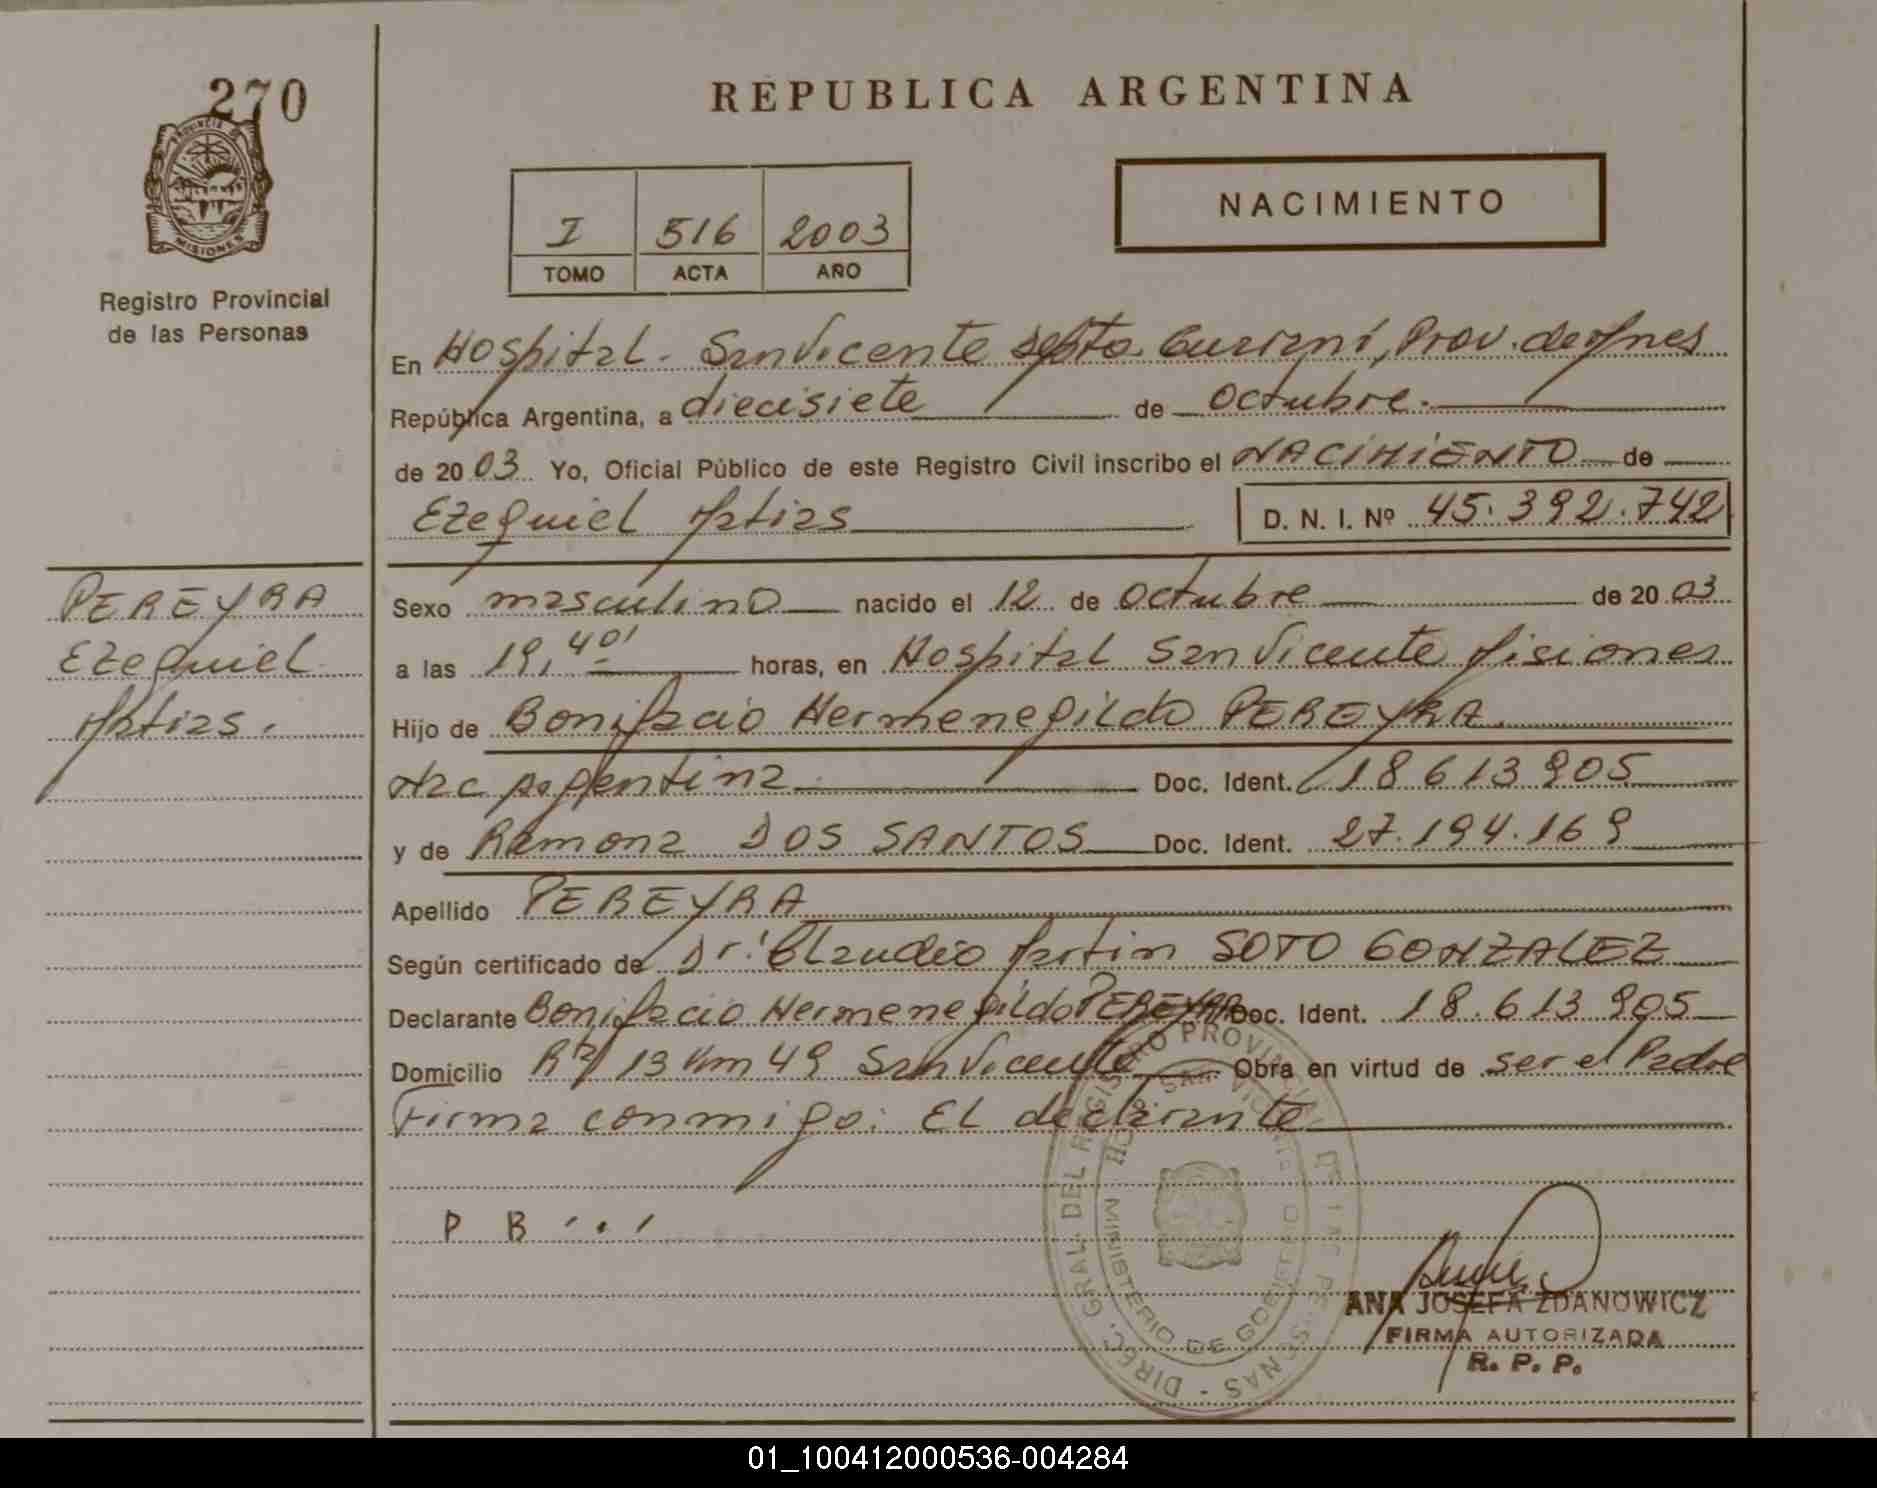 270
PROVINCIA DE
MISIONES
Registro Provincial
de las Personas
REPUBLICA ARGENTINA
I 516 2003
TOMO ACTA AÑO
NACIMIENTO
En Hospital San Vicente Depto. Guaraní, Prov. de Mnes
República Argentina, a diecisiete de octubre.
de 20 03 Yo, Oficial Público de este Registro Civil inscribo el NACIMIENTO de
Ezequiel Matias D. N. I. Nº 45.392.742
PEREYRA
Ezequiel
Matias.
Sexo masculino nacido el 12 de octubre de 20 03
a las 19,40' horas, en Hospital San Vicente Misiones
Hijo de Bonifacio Hermenegildo PEREYRA
Nac Argentina Doc. Ident. 18.613.905
y de Ramona DOS SANTOS Doc. Ident. 27.194.169
Apellido PEREYRA
Según certificado de Dr. Claudio Martin SOTO GONZALEZ
Declarante Bonifacio Hermenegildo PEREYRA Doc. Ident. 18.613.905
Domicilio R 13 Km 49 San Vicente Obra en virtud de ser el Padre
Firma conmigo: El declarante
P B
DIREC. GRAL. DEL REGISTRO PROVINCIAL DE LAS PERSONAS
MINISTERIO DE GOBIERNO
ANA JOSEFA ZDANOWICZ
FIRMA AUTORIZADA
R. P. P.
01_100412000536-004284